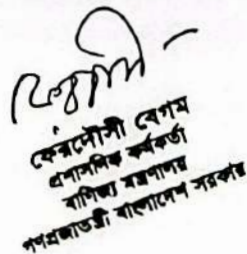 ফেরদৌসী
ফেরদৌসী বেগম
প্রশাসনিক কর্মকর্তা
বাণিজ্য মন্ত্রণালয়
গণপ্রজাতন্ত্রী বাংলাদেশ সরকার